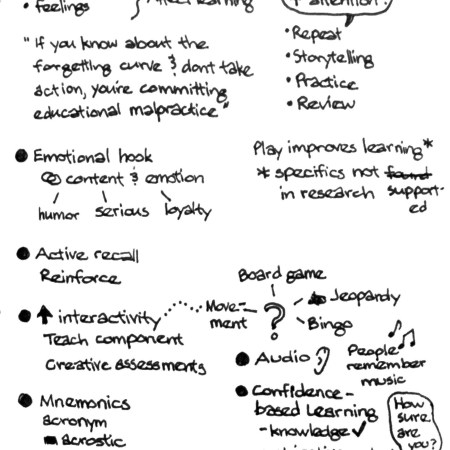 • feelings
learning
"If you know about the
forgetting curve & dont take
action, you're committing
educational malpractice"
• Repeat
• Storytelling
• Practice
• Review
• Emotional hook
content & emotion
humor serious loyalty
Play improves learning*
* specifics not found
in research support-
ed
• Active recall
Reinforce
• ↑ interactivity
Teach component
Creative assessments
Board game
Move-
ment
?
Jeopardy
Bingo
• Audio
People
remember
music
• Mnemonics
acronym
acrostic
• Confidence-
based Learning
- knowledge ✓
How
sure
are
you?